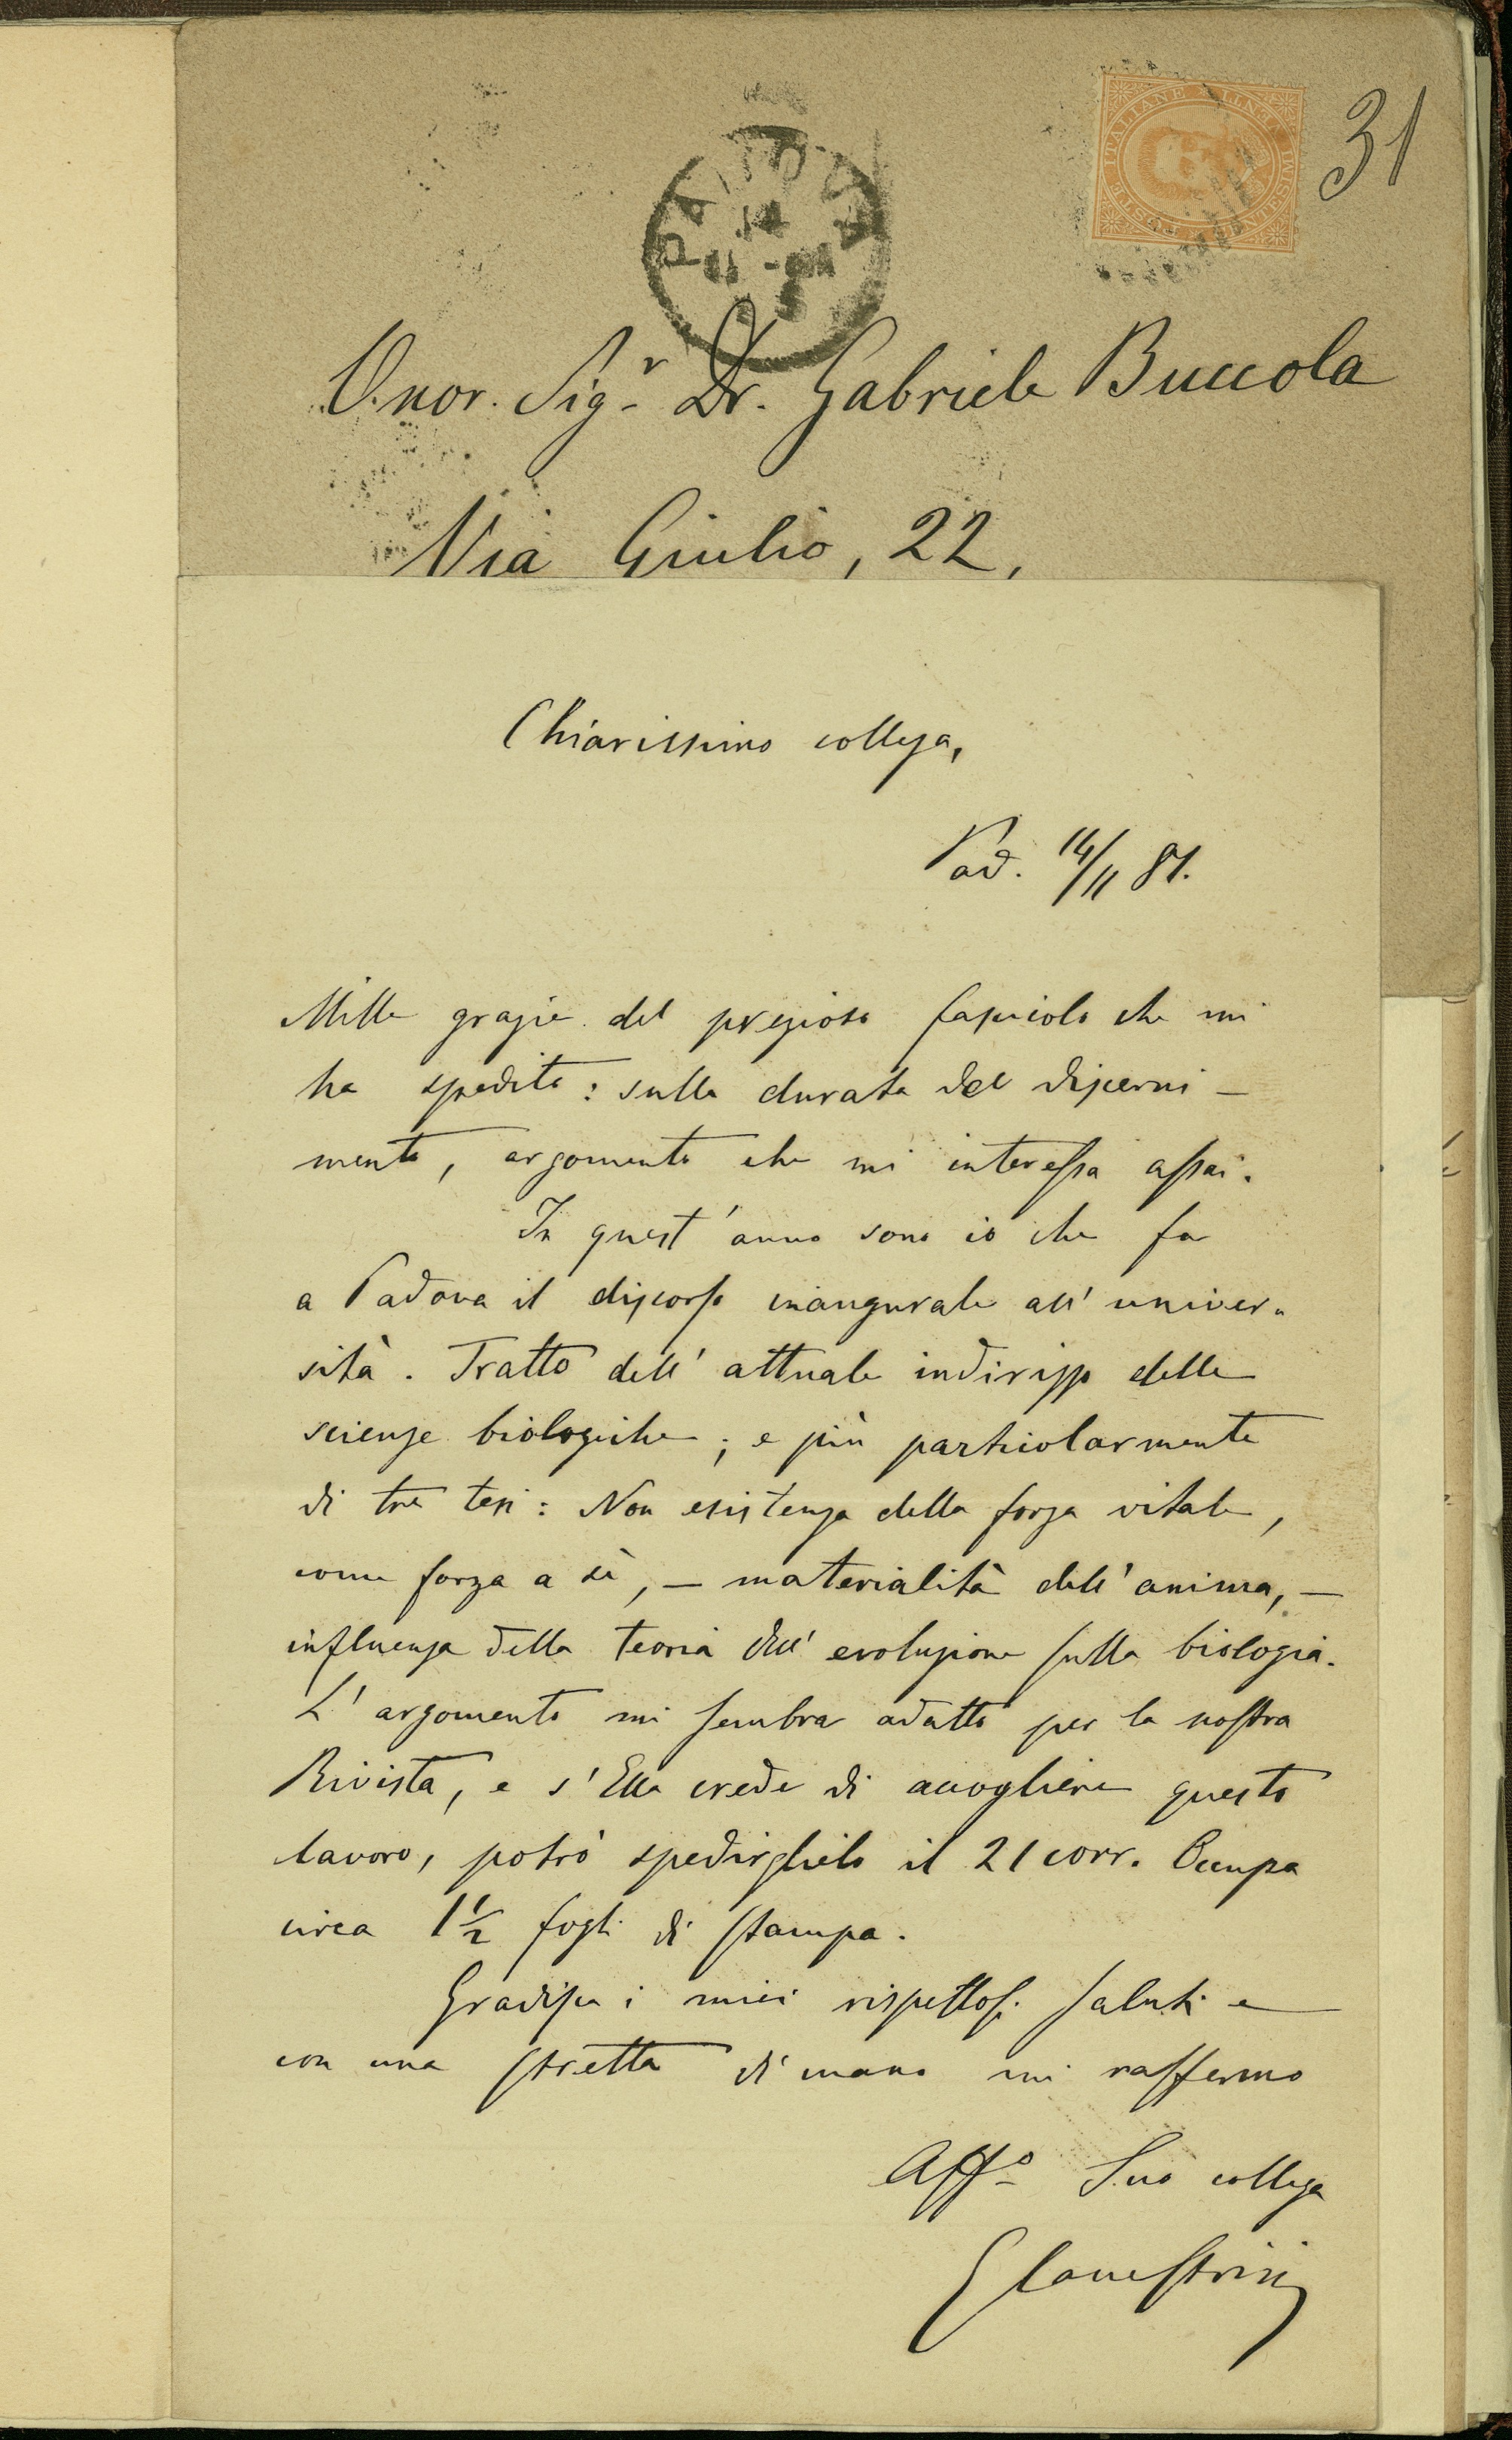 31
PADOVA
14
POSTE ITALIANE VENTI CENTESIMI
Onor. Sigr Dr. Gabriele Buccola
Via Giulio, 22,
Chiarissimo collega,
Pad. 14/11 81.
Mille grazie del prezioso fascicolo che mi
ha spedito: sulla durata del discerni-
mento, argomento che mi interessa assai.
In quest'anno sono io che fa
a Padova il discorso inaugurale all'univer-
sità. Tratto dell'attuale indirizzo delle
scienze biologiche; e più particolarmente
di tre tesi: Non esistenza della forza vitale,
come forza a sè, — materialità dell'anima, —
influenza della teoria dell'evoluzione sulla biologia.
L'argomento mi sembra adatto per la nostra
Rivista, e s'Ella crede di accogliere questo
lavoro, potrò spedirglielo il 21 corr. Occupa
circa 1½ fogli di stampa.
Gradisca i miei rispettosi saluti e
con una stretta di mano mi raffermo
Affo Suo collega
G Canestrini